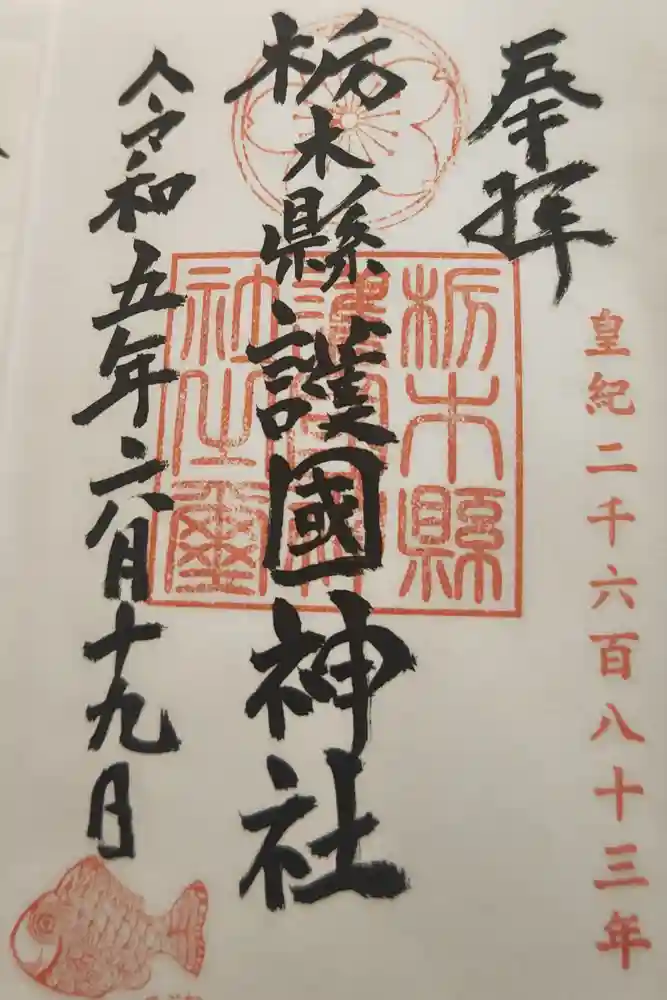 皇紀二千六百八十三年
奉拝
栃木縣護國神社
栃木縣護國神社之璽
令和五年六月十九日